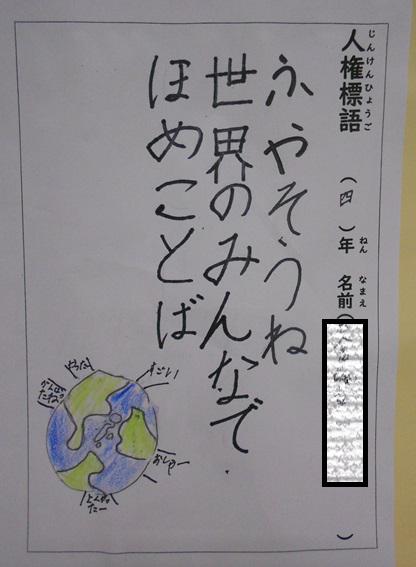 人権標語
じんけんひょうご
（四）年
ねん
名前（
なまえ
）
ふやそうね
世界のみんなで
ほめことば
すごい
やったね
がんばったね